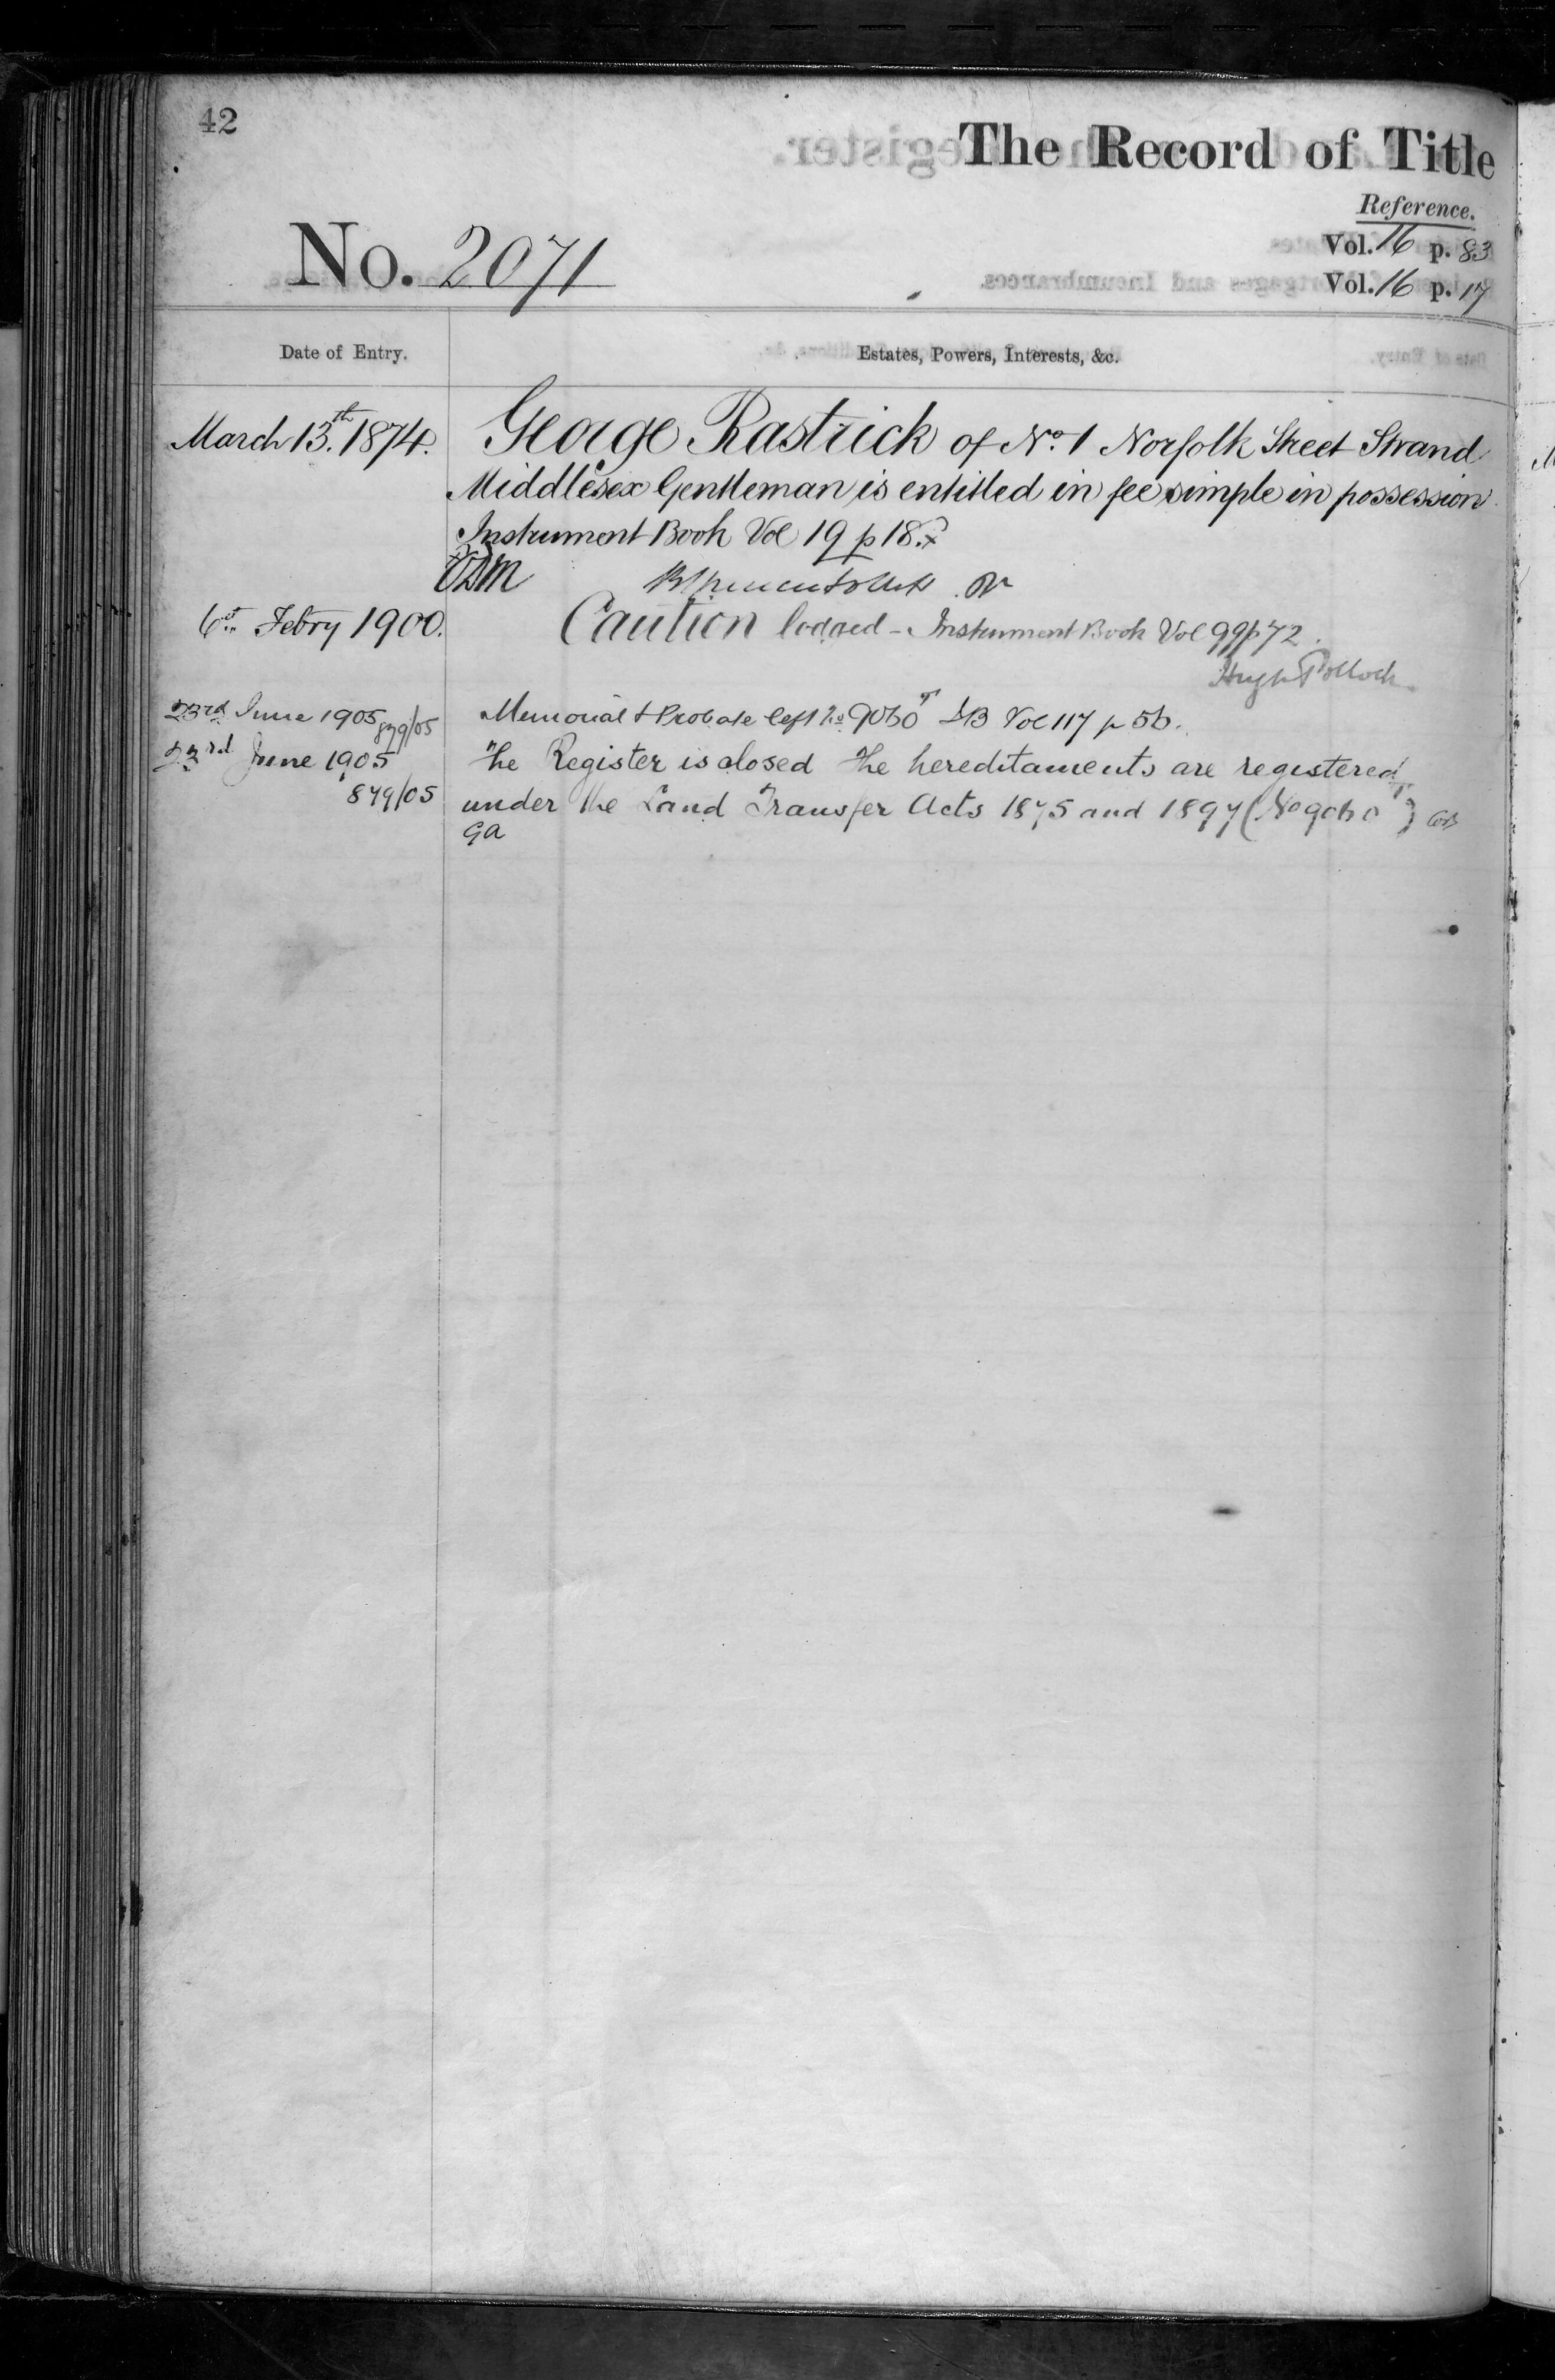 42
The Record of Title
Reference.
No. 2071
Vol. 16 p. 83
Vol. 16 p. 17
Date of Entry.
Estates, Powers, Interests, &c.
March 13.th 1874.
George Rastrick of No. 1 Norfolk Street Strand
Middlesex Gentleman is entitled in fee simple in possession
Instrument Book Vol 19 p 18.
6th Febry 1900.
Caution lodged - Instrument Book Vol 99 p 72.
Hugh Pollock
23rd June 1905 879/05
Memorial & Probate left No 9060T IB Vol 117 p 56.
23rd June 1905
The Register is closed The hereditaments are registered
879/05
under the Land Transfer Acts 1875 and 1897 (No 9060T)
GA